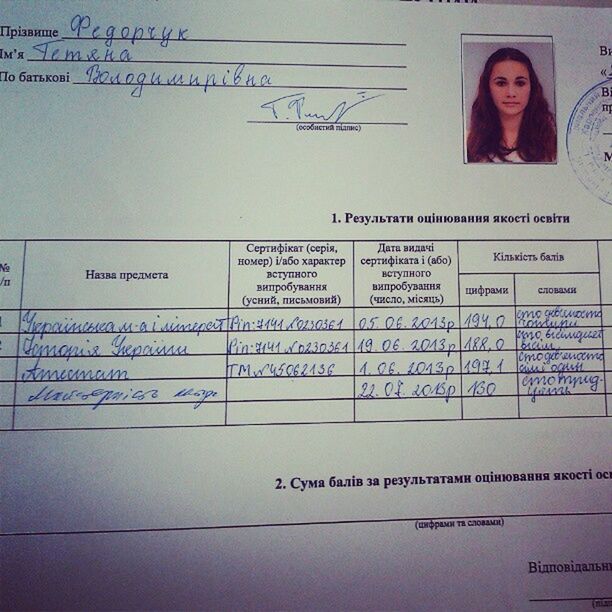 Прізвище Федорчук
Ім'я Тетяна
По батькові Володимирівна
(особистий підпис)
1. Результати оцінювання якості освіти
№ п/п
Назва предмета
Сертифікат (серія, номер) і/або характер вступного випробування (усний, письмовий)
Дата видачі сертифіката і (або) вступного випробування (число, місяць)
Кількість балів
цифрами
словами
Українська м-а і літерат Ріп: 7141 №0230361 05.06.2013р 194,0 сто дев'яносто чотири
2 Історія України Ріп: 7141 №0230361 19.06.2013р 188,0 сто вісімдесят вісім
Атестат ТМ №45062136 1.06.2013р 197,1 сто дев'яносто сім і один
Майстерність 22.07.2013р 130 сто тридцять
2. Сума балів за результатами оцінювання якості осв
(цифрами та словами)
Відповідальн